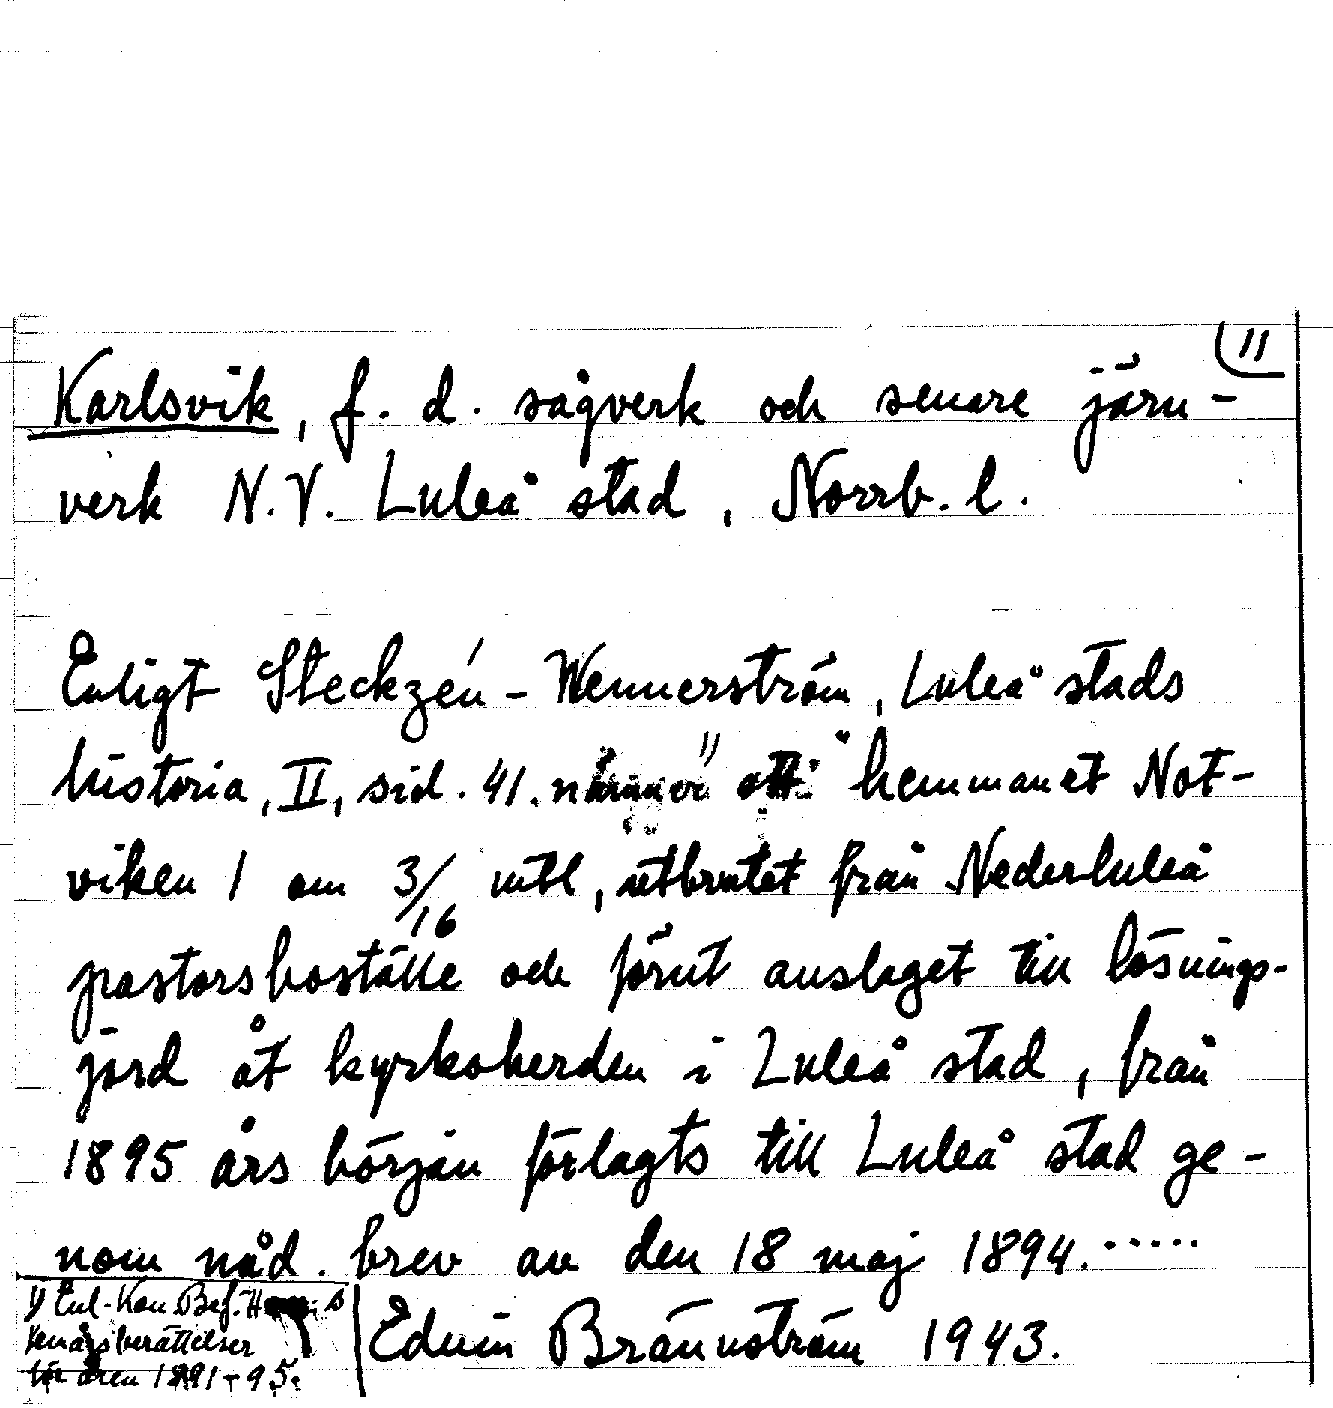 11
Karlsvik, f. d. sågverk och senare järn-
verk N.V. Luleå stad, Norrb. l.
Enligt Steckzén - Wennerström, Luleå stads
historia, II, sid. 41. "hemmanet Not-
viken 1 om 3/16 mtl, utbrutet från Nederluleå
pastorsboställe och förut anslaget till lösnings-
jord åt kyrkoherden i Luleå stad, från
1895 års början förlagts till Luleå stad ge-
nom nåd. brev av den 18 maj 1894. .....
1) Enl. Kon. Bef. H
femårsberättelser
för åren 1891-95.
Edvin Brännström 1943.